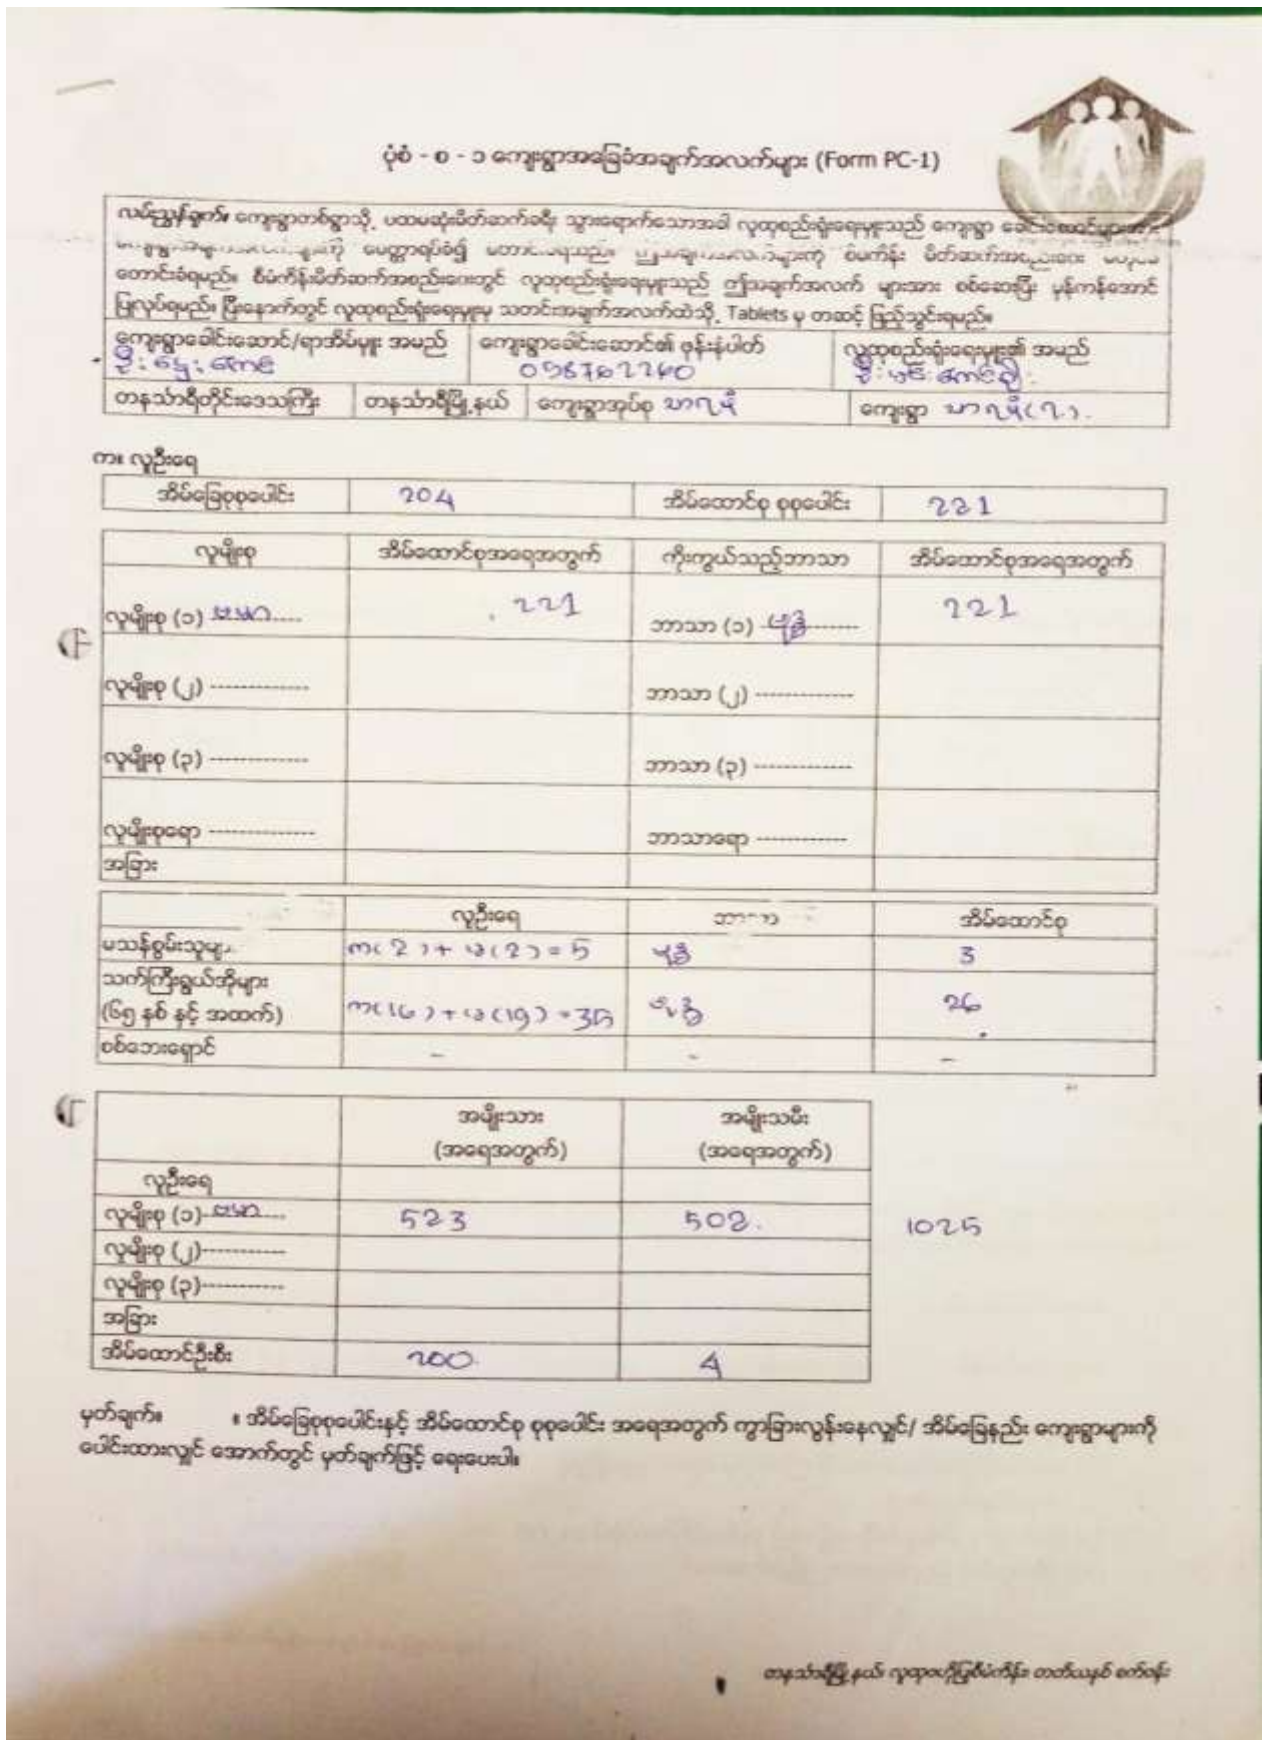 ပုံစံ - စ - ၁ ကျေးရွာအခြေခံအချက်အလက်များ (Form PC-1)
လမ်းညွှန်ချက်။ ကျေးရွာတစ်ရွာသို့ ပထမဆုံးမိတ်ဆက်ခရီး သွားရောက်သောအခါ လူထုစည်းရုံးရေးမှူးသည် ကျေးရွာ ခေါင်းဆောင်များအား
မေတ္တာရပ်ခံ၍ တောင်းခံရမည်။ ဤအချက်အလက်များကို စီမံကိန်း မိတ်ဆက်အစည်းဝေး
တောင်းခံရမည်။ စီမံကိန်းမိတ်ဆက်အစည်းဝေးတွင် လူထုစည်းရုံးရေးမှူးသည် ဤအချက်အလက် များအား စစ်ဆေးပြီး မှန်ကန်အောင်
ပြုလုပ်ရမည်။ ပြီးနောက်တွင် လူထုစည်းရုံးရေးမှူးမှ သတင်းအချက်အလက်ထဲသို့ Tablets မှ တဆင့် ဖြည့်သွင်းရမည်။
ကျေးရွာခေါင်းဆောင်/ရာအိမ်မှူး အမည် ကျေးရွာခေါင်းဆောင်၏ ဖုန်းနံပါတ် လူထုစည်းရုံးရေးမှူး၏ အမည်
တနင်္သာရီတိုင်းဒေသကြီး တနင်္သာရီမြို့နယ် ကျေးရွာအုပ်စု သာရမှီ ကျေးရွာ
က။ လူဦးရေ
အိမ်ခြေစုစုပေါင်း 204 အိမ်ထောင်စု စုစုပေါင်း 221
လူမျိုးစု အိမ်ထောင်စုအရေအတွက် ကိုးကွယ်သည့်ဘာသာ အိမ်ထောင်စုအရေအတွက်
လူမျိုးစု (၁) ဗမာ 221 ဘာသာ (၁) ဗုဒ္ဓ 221
လူမျိုးစု (၂) ------------- ဘာသာ (၂) -------------
လူမျိုးစု (၃) ------------- ဘာသာ (၃) -------------
လူမျိုးစုရော -------------- ဘာသာရော ------------
အခြား
လူဦးရေ ဘာသာ အိမ်ထောင်စု
မသန်စွမ်းသူများ ဗုဒ္ဓ 3
သက်ကြီးရွယ်အိုများ
(၆၅ နှစ် နှင့် အထက်) က(16) + မ(19) = 35 ဗုဒ္ဓ 26
စစ်ဘေးရှောင် - - -
အမျိုးသား အမျိုးသမီး
(အရေအတွက်) (အရေအတွက်)
လူဦးရေ
လူမျိုးစု (၁) ဗမာ 523 502. 1025
လူမျိုးစု (၂)-----------
လူမျိုးစု (၃)-----------
အခြား
အိမ်ထောင်ဦးစီး 200 4
မှတ်ချက်။ ။ အိမ်ခြေစုစုပေါင်းနှင့် အိမ်ထောင်စု စုစုပေါင်း အရေအတွက် ကွာခြားလွန်းနေလျှင်/ အိမ်ခြေနည်း ကျေးရွာများကို
ပေါင်းထားလျှင် အောက်တွင် မှတ်ချက်ဖြင့် ရေးပေးပါ။
တနင်္သာရီမြို့နယ်၊ လူထုဗဟိုပြုစီမံကိန်း၊ တတိယနှစ် စက်ဝန်း